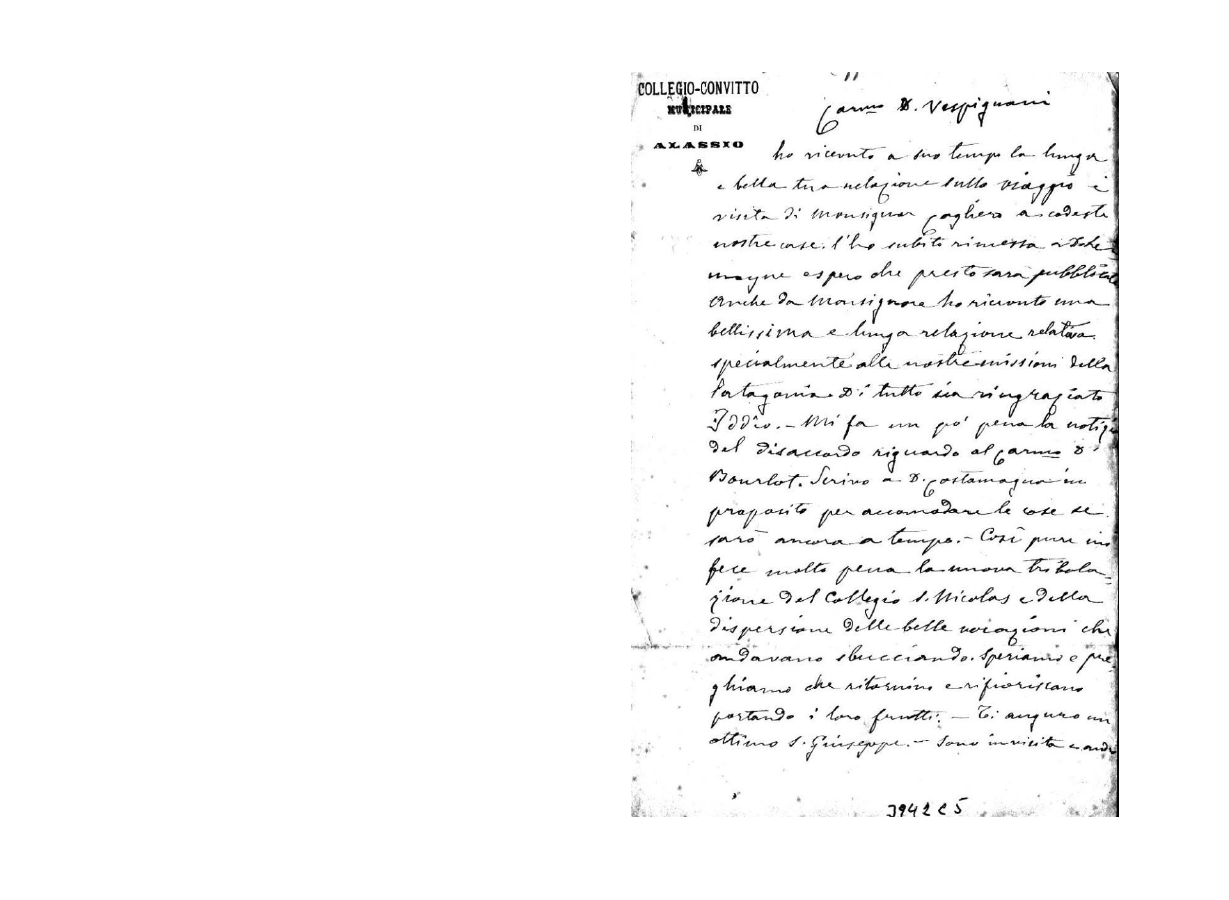 COLLEGIO-CONVITTO
MUNICIPALE
DI
ALASSIO
Carmo D. Vespignani
ho ricevuto a suo tempo la lunga
e bella tua relazione sullo viaggio e
visita di Monsignor Cagliero a codeste
nostre case. l'ho subito rimessa a
e spero che presto sarà pubblicata
Anche da Monsignore ho ricevuto una
bellissima e lunga relazione relativa
specialmente alle nostre missioni della
Patagonia. Di tutto sia ringraziato
Iddio. - Mi fa un po' pena la notizia
del disaccordo riguardo al Carmo D.
Bourlot. Scrivo a D. Costamagna in
proposito per accomodare le cose se
sarò ancora a tempo. - Così pure mi
fece molto pena la nuova tribola=
zione del Collegio S. Nicolas e della
dispersione delle belle vocazioni che
andavano sbucciando. Speriamo e pre=
ghiamo che ritornino e rifioriscano
portando i loro frutti. - Ti auguro un
ottimo S. Giuseppe. - Sono in visita e
3942 C 5